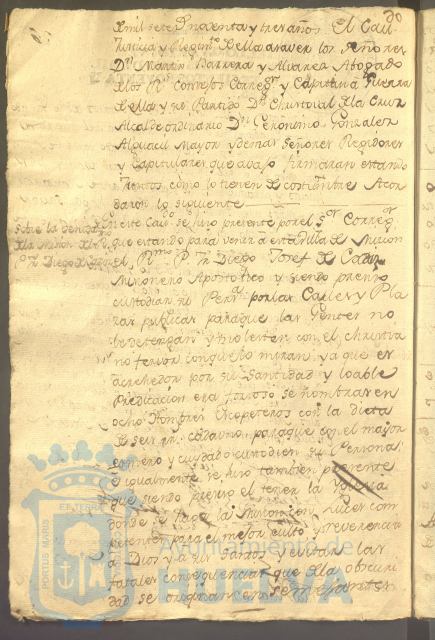 mil sete noventa y tres años El Cau-
Justicia y Regim.to de ella a saver los Señores
D.n Martin Barrera y Alvarez Abogado
de los R.s Consejos Correg.or y Capitan a Guerra
de ella y su Partido D.n Christoval de la Cruz
Alcalde ordinario D.n Geronimo Gonzalez
Alguacil Mayor y demas Señores Regidores
y Capitulares que abajo firmaran estando
como lo tienen de costumbre Acor
daron lo siguiente
sobre la
de la Mision
P. Fr. Diego
este Cav.do se hizo presente por el S.or Correg.or
que estando para venir a esta Villa de Mision
el R.mo P. Fr. Diego Josef de Cadiz
Misionero Apostolico y siendo preciso
custodiar su Pers.na por las Calles y Pla
zas publicas para que las Gentes no
le detengan y molesten con el christia
no fervor con que lo miran, ya que es
acrehedor por su Santidad y loable
Predicacion era forzoso se nombrasen
ocho hombres Escopeteros con la dieta
de seis r.s cada uno, para que con el mayor
esmero y cuydado custodien su Persona:
e igualmente se hizo tambien presente
que siendo preciso el tener la Yglesia
donde se haga la Mision con luces com
petentes para el mejor culto y reverencia
a Dios y a sus Santos y evitar las
fatales consequencias que de la obscuri
dad se originan en semejantes
PORTUS MARIS
ET TERRAE
Ayuntamiento de
HUELVA